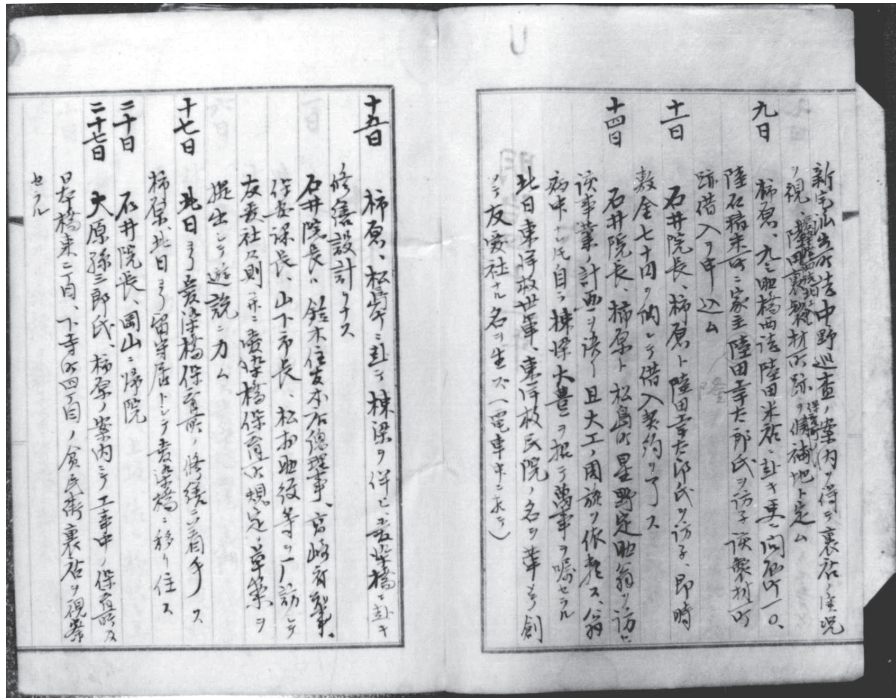 新宅派出所詰中野巡査ノ案内ヲ得テ裏店ノ実況
ヲ視、陸田裏製材所跡ヲ候補地ト定ム
九日 柿原、九之助橋西詰陸田米店ニ赴キ更ニ問屋町一〇、
陸石精米所ニ家主陸田幸太郎氏ヲ訪予該製材所
跡借入ヲ申込ム
十一日 石井院長、柿原ト陸田幸太郎氏ヲ訪予、即時
敷金七十円ヲ納レテ借入契約ヲ了ス
十四日 石井院長、柿原ト松島ニ星野定助翁ヲ訪ヒ
該事業ノ計画ヲ談リ且大工ノ周旋ヲ依頼ス、翁
病中ニモ自ラ棟梁大豊ヲ招テ萬事ヲ嘱セラル
此日東洋救世軍、東洋救民院ノ名ヲ革メ創
メテ友愛社ナル名ヲ生ズ(電車中ニ於テ)
十五日 柿原、松島ニ赴キ棟梁ヲ伴ヒ愛染橋ニ赴キ
修繕設計ヲナス
石井院長ハ鈴木住友本店総理事、宮崎府
保安課長、山下市長、松村助役等ヲ一々訪レテ
友愛社々則并ニ愛染橋保育所規定ノ草案ヲ
提出シテ遊説ニ力ム
十七日 此日ヨリ愛染橋保育所ノ修繕ニ着手ス
柿原此日ヨリ留守居トシテ愛染橋ニ移リ住ス
二十日 石井院長、岡山ニ帰院
二十七日 大原孫三郎氏、柿原ノ案内ニテ工事中ノ保育所及
日本橋東二丁目、下寺町四丁目ノ貧民街裏店ヲ視察
セラル